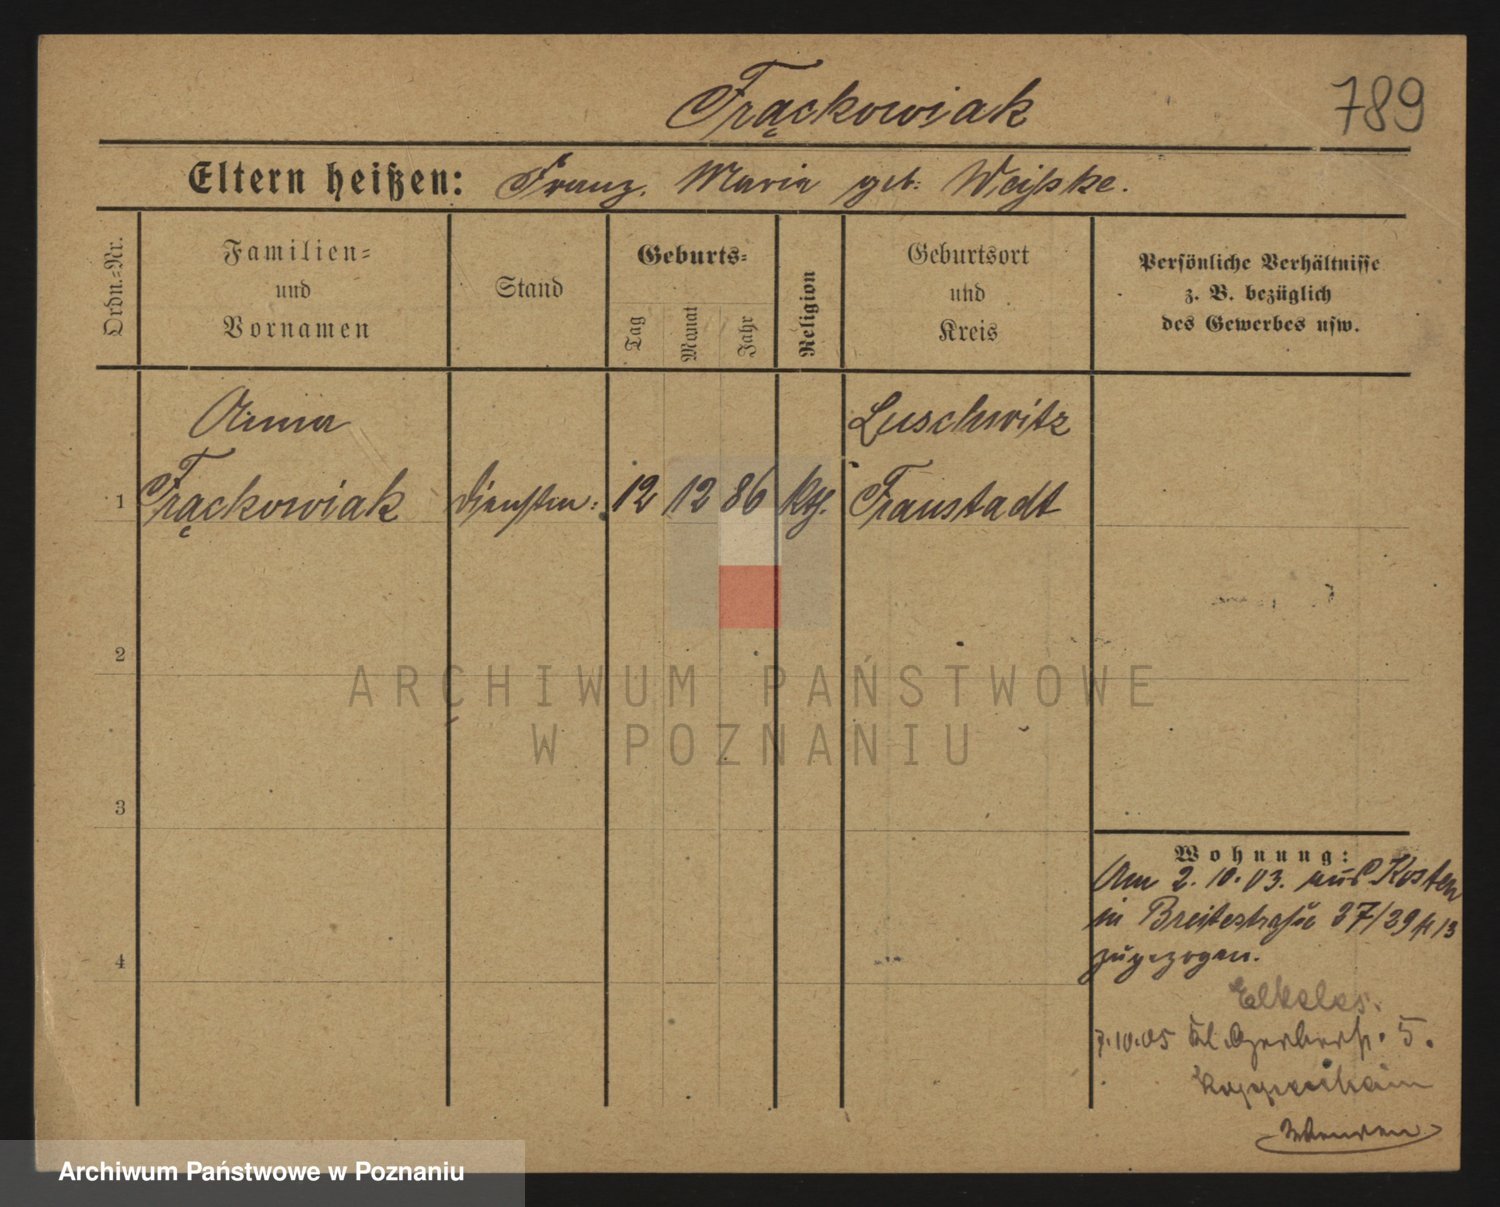 Frąckowiak
789
Eltern heißen: Franz. Maria geb: Weißke.
Ordn.-Nr.
Familien-
und
Vornamen
Stand
Geburts-
Tag
Monat
Jahr
Religion
Geburtsort
und
Kreis
Persönliche Verhältnisse
z. B. bezüglich
des Gewerbes usw.
Anna
Luschwitz
1 Frąckowiak Dienstm: 12 12 86 kth. Fraustadt
2
3
4
Wohnung:
Am 2.10.03. aus Kosten
in Breitestraße 37/39
zugezogen.
Elkeles.
7.10.05 Kl. Gerberstr. 5.
ARCHIWUM PAŃSTWOWE
W POZNANIU
Archiwum Państwowe w Poznaniu